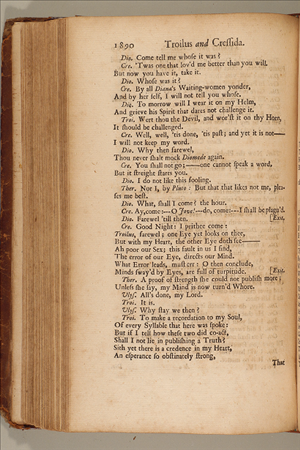 1890 Troilus and Cressida.
Dio. Come tell me whose it was?
Cre. 'Twas one that lov'd me better than you will.
But now you have it, take it.
Dio. Whose was it?
Cre. By all Diana's Waiting-women yonder,
And by her self, I will not tell you whose.
Dio. To morrow will I wear it on my Helm,
And grieve his Spirit that dares not challenge it.
Troi. Wert thou the Devil, and wor'st it on thy Horn,
It should be challenged.
Cre. Well, well, 'tis done, 'tis past; and yet it is not—
I will not keep my word.
Dio. Why then farewel,
Thou never shalt mock Diomede again.
Cre. You shall not go;——one cannot speak a word,
But it streight starts you.
Dio. I do not like this fooling.
Ther. Nor I, by Pluto: But that that likes not me, plea-
ses me best.
Dio. What, shall I come? the hour.
Cre. Ay, come:—O Jove!—do, come:—I shall be plagu'd.
Dio. Farewel 'till then. [Exit.
Cre. Good Night: I prithee come:
Troilus, farewel; one Eye yet looks on thee,
But with my Heart, the other Eye doth see——
Ah poor our Sex; this fault in us I find,
The error of our Eye, directs our Mind.
What Error leads, must err: O then conclude,
Minds sway'd by Eyes, are full of turpitude. [Exit.
Ther. A proof of strength she could not publish more;
Unless she say, my Mind is now turn'd Whore.
Ulys. All's done, my Lord.
Troi. It is.
Ulys. Why stay we then?
Troi. To make a recordation to my Soul,
Of every Syllable that here was spoke:
But if I tell how these two did co-act,
Shall I not lie in publishing a Truth?
Sith yet there is a credence in my Heart,
An esperance so obstinately strong,
That